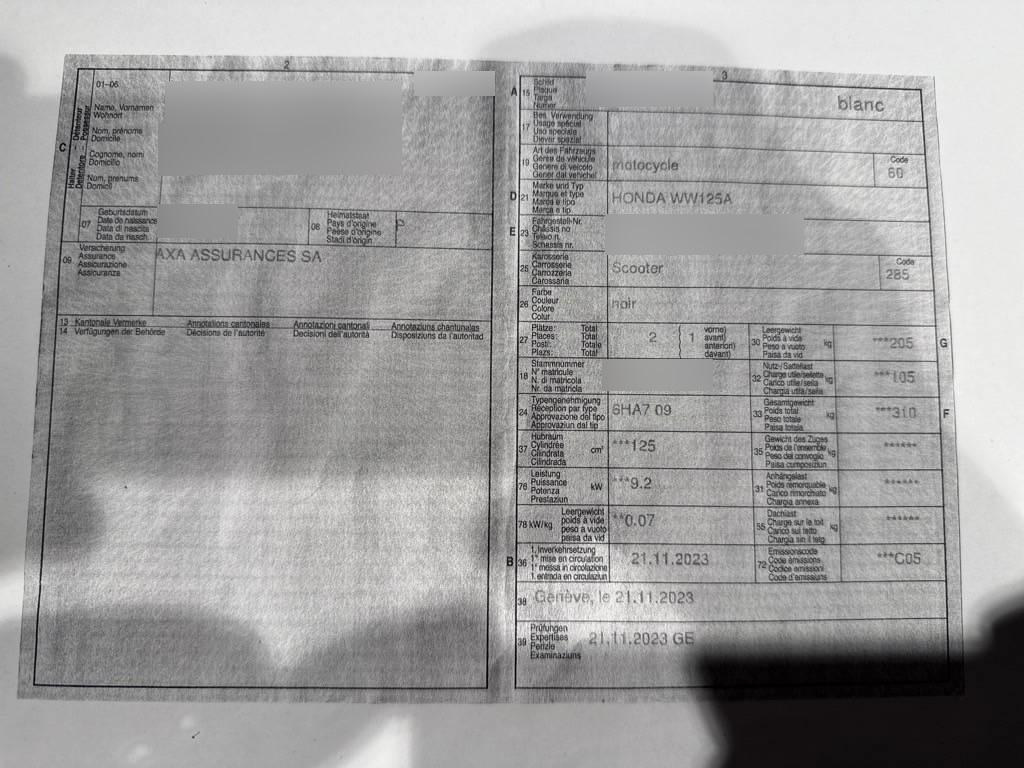 2
01-06
Halter
Détenteur
Detentore
Possessur
C
Name, Vornamen
Wohnort
Nom, prénoms
Domicile
Cognome, nomi
Domicilio
Num, prenums
Domicil
07
Geburtsdatum
Date de naissance
Data di nascita
Data da nasch.
08
Heimatstaat
Pays d'origine
Paese d'origine
Stadi d'origin
P
09
Versicherung
Assurance
Assicurazione
Assicuranza
AXA ASSURANCES SA
13 Kantonale Vermerke
14 Verfügungen der Behörde
Annotations cantonales
Décisions de l'autorité
Annotazioni cantonali
Decisioni dell'autorità
Annotaziuns chantunalas
Disposiziuns da l'autoritad
3
A 15
Schild
Plaque
Targa
Numer
blanc
17
Bes. Verwendung
Usage spécial
Uso speciale
Diever spezial
19
Art des Fahrzeugs
Genre de véhicule
Genere di veicolo
Gener dal vehichel
motocycle
Code
60
D 21
Marke und Typ
Marque et type
Marca e tipo
Marca e tip
HONDA WW125A
E 23
Fahrgestell-Nr.
Châssis no
Telaio n.
Schassis nr.
25
Karosserie
Carrosserie
Carrozzeria
Carossaria
Scooter
Code
285
26
Farbe
Couleur
Colore
Colur
noir
27
Plätze: Total
Places: Total
Posti: Totale
Plazs: Total
2
1
vorne)
avant)
anteriori)
davant)
30
Leergewicht
Poids à vide
Peso a vuoto
Paisa da vid
kg
***205
G
18
Stammnummer
N° matricule
N. di matricola
Nr. da matricla
32
Nutz-/Sattellast
Charge utile/sellette
Carico utile/sella
Chargia utila/sella
kg
***105
24
Typengenehmigung
Réception par type
Approvazione del tipo
Approvaziun dal tip
6HA7 09
33
Gesamtgewicht
Poids total
Peso totale
Paisa totala
kg
***310
F
37
Hubraum
Cylindrée
Cilindrata
Cilindrada
cm³
***125
35
Gewicht des Zuges
Poids de l'ensemble
Peso del convoglio
Paisa cumposiziun
kg
******
76
Leistung
Puissance
Potenza
Prestaziun
kW
***9.2
31
Anhängelast
Poids remorquable
Carico rimorchiato
Chargia annexa
kg
******
78 kW/kg
Leergewicht
poids à vide
peso a vuoto
paisa da vid
**0.07
55
Dachlast
Charge sur le toit
Carico sul tetto
Chargia sin il tetg
kg
******
B 36
1. Inverkehrsetzung
1re mise en circulation
1a messa in circolazione
1. entrada en circulaziun
21.11.2023
72
Emissionscode
Code émissions
Codice emissioni
Code d'emissiuns
***C05
38
Genève, le 21.11.2023
39
Prüfungen
Expertises
Perizie
Examinaziuns
21.11.2023 GE